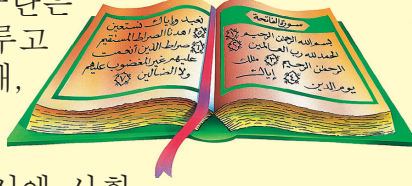 란은
루고
سورة الفاتحة
بسم الله الرحمن الرحيم
الحمد لله رب العالمين
الرحمن الرحيم ملك
يوم الدين إياك
نعبد وإياك نستعين
اهدنا الصراط المستقيم
صراط الذين أنعمت
عليهم غير المغضوب عليهم
ولا الضالين